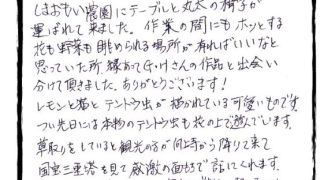 しまおもい農園にテーブルと丸太の椅子が
運ばれて来ました。作業の間にもホッとする
花も野菜も眺められる場所が有ればいいなと
思っていた所、縁あってG・Hさんの作品と出会い
分けて頂きました。ありがとうございます!
レモンと葉とテントウ虫が描かれている可愛いものです。
つい先日には本物のテントウ虫も机の上で遊んでいます。
草取りをしていると観光の方が向上寺から降りて来て
国宝三重塔を見て感激の面もちで話してくれます。